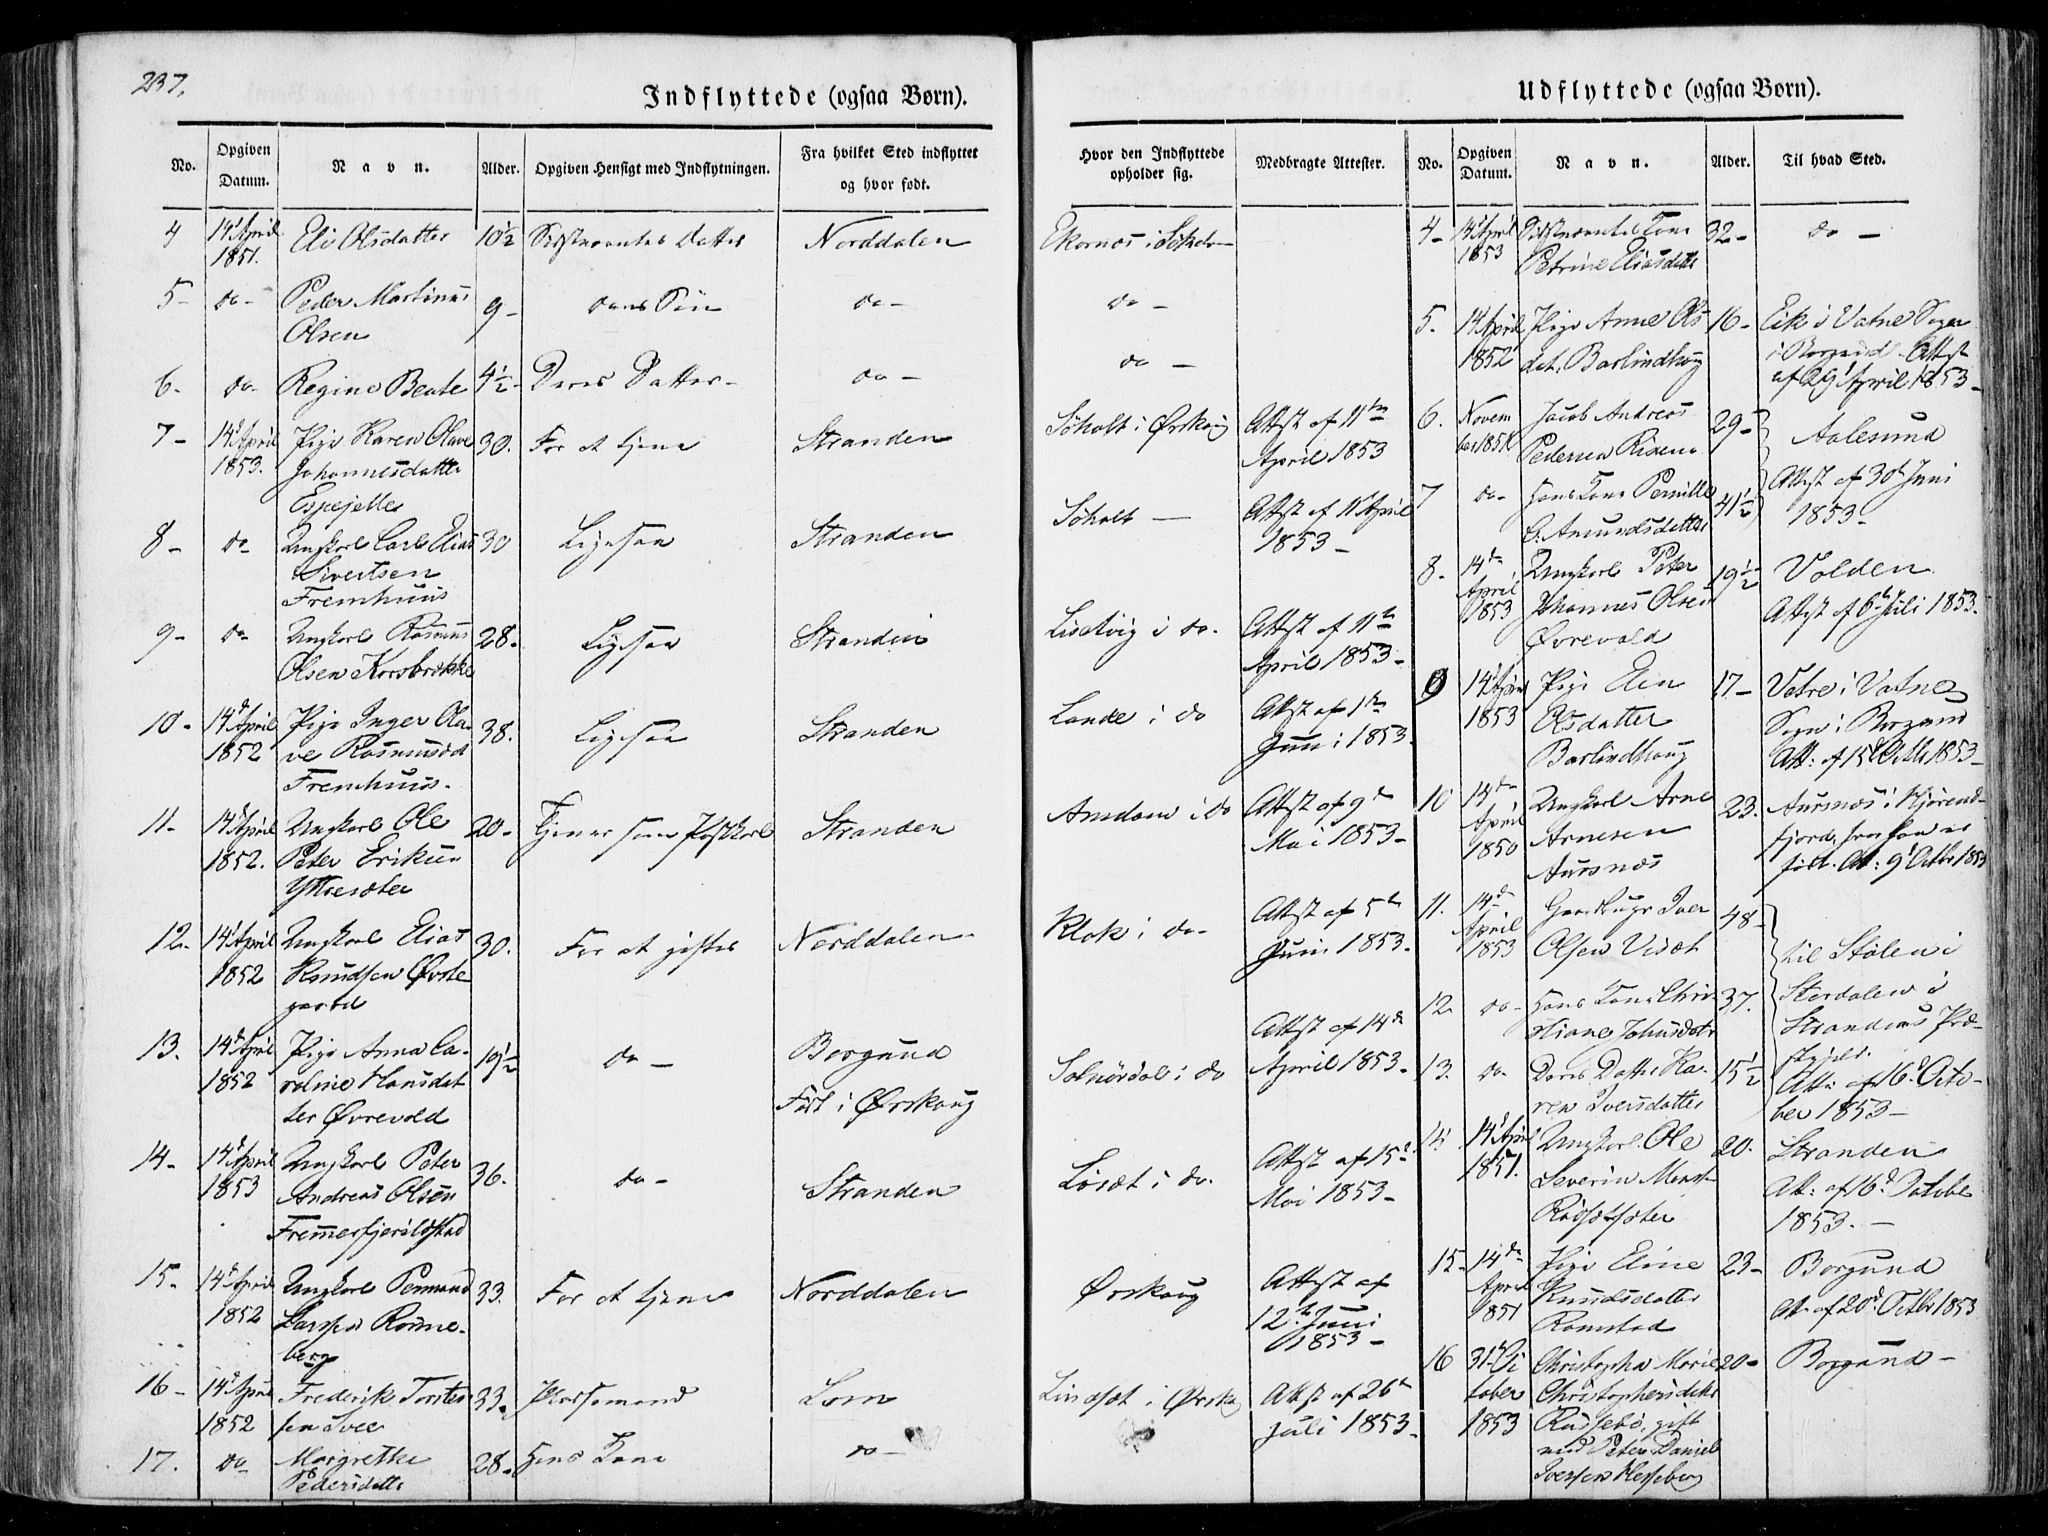 237.
Indflyttede (ogsaa Børn).
No. | Opgiven Datum. | Navn. | Alder. | Opgiven Hensigt med Indflytningen. | Fra hvilket Sted indflyttet og hvor født. | Hvor den Indflyttede opholder sig. | Medbragte Attester.
4 | 14d April 1851. | Eli Olsdatter | 10½ | Sidstnævntes Datter | Norddalen | Ekornæs i
5- | do- | Peder Martinus Olsen | 9- | Søn | do- | do-
6- | do- | Regine Beate | 4½- | Deres Datter- | do- | do-
7- | 14d April 1853. | Pige Karen Olave Johannesdatter | 30. | For at tjene | Stranden | Søholt i Ørskoug | Attest af 11te April 1853
8- | do | Ungkarl Carl Elias Sivertsen Fremhuus | 30 | Ligesaa | Stranden | Søholt - | Attest af 11te April 1853-
9- | do | Ungkarl Rasmus Olsen Korsbrekke | 28. | Ligesaa | Stranden | Lidvig i do. | Attest af 11te April 1853-
10- | 14d April 1852 | Pige Inger Olave Rasmusd Fremhuus. | 38. | Ligesaa | Stranden | Lande i do | Attest af 1te Juni 1853.
11- | 14d April 1852. | Ungkarl Ole Peter Eriksen Ytresæter | 20- | Tjener som Postkarl | Stranden | Amdam i do | Attest af 9d Mai 1853-
12- | 14d April 1852 | Ungkarl Elias Knudsen Øvstegaard | 30. | For at giftes | Norddalen | Klok i do- | Attest af 5te Juni 1853.
13. | 14d April 1852 | Pige Anna Caroline Hansdatter Øvrevold | 19½ | do - | Borgund Født i Ørskoug | Solnørdal i do | Attest af 14de April 1853.
14- | 14d April 1853 | Ungkarl Peter Andreas Olsen | 36. | do- | Stranden | Løset i do. | Attest af 15d Mai 1853-
15- | 14d April 1852 | Ungkarl Larsen Rønneberg | 33. | For at tjene | Norddalen | Ørskoug | Attest af 12te Juni 1853-
16- | 14d April 1852 | Frederik Torstensen | 33. | Pladsemand | Lom | Lindset i | Attest af 26te Juli 1853-
17. | do | Margrethe Pedersdatter | 28- | Hans Kone | do-
Udflyttede (ogsaa Børn).
No. | Opgiven Datum. | Navn. | Alder. | Til hvad Sted.
4- | 14d April 1853 | Sidstnævntes Kone Petrine Eliasdatter | 32- | do -
5. | 14d April 1852 | Pige Anne Olsdat. Barlindhoug | 16- | Eik i Vatne Sogn i Borgund. Attest af 29d April 1853-
6. | November 1851 | Jacob Andreas Pedersen | 29- | Aalesund Attest af 30d Juni 1853-
7 | do- | Hans Kone Pernille Amundsdatter | 41½
8- | 14de April 1853 | Ungkarl Peter Johannes Olsen Øvrevold | 19½ | Volden Attest af 6te Juli 1853.
9 | 14d April 1853 | Pige Elen Olsdatter Barlindhoug | 17- | Vatne Sogn i Borgund Att: af 15d Octbr 1853-
10 | 14de April 1850 | Ungkarl Arne Arnesen Aursnæs | 23. | Aursnæs i Hjørendfjord, hvor han er født. Att: 9d Octbr 1853
11. | 14de April 1853 | Iver Olsen | 48- | til Stølen i Stordalen i Strandens Præstegjeld. Att: af 16d October 1853-
12. | do- | Hans Kone Christiane Johnsdatr | 37.
13. | do- | Deres Datter Karen Iversdatter | 15½
14. | 14d April 1851. | Ungkarl Ole Severin | 20. | Stranden Att: af 16d October 1853.-
15- | 14de April 1851 | Pige Eline Knudsdatter Ramstad | 23- | Borgund Att- af 20d Octbr 1853
16 | 31d October 1853 | Christopha Marie Christophersdatr gift med Peter Daniel Iversen Hesseberg | 20- | Borgund-